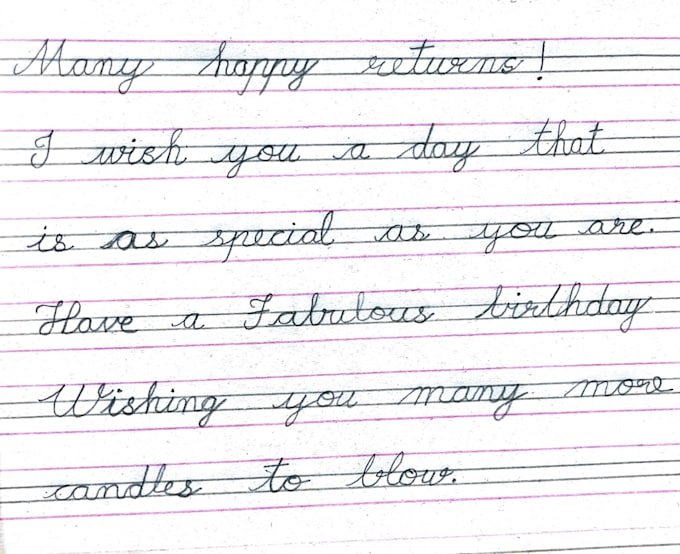 Many happy returns!
I wish you a day that
is as special as you are.
Have a Fabulous birthday
Wishing you many more
candles to blow.